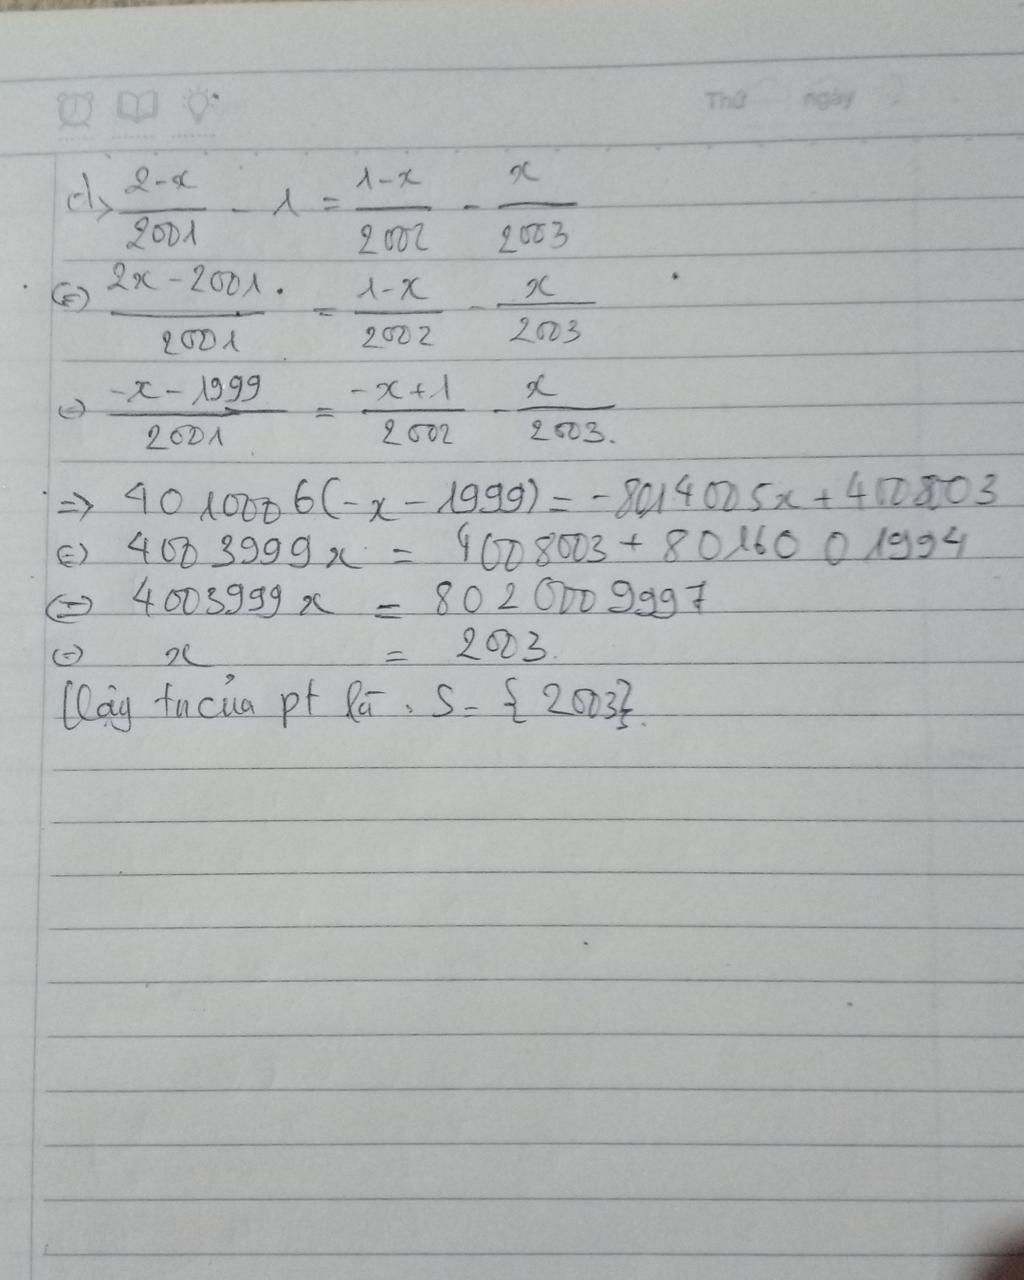 Thứ ngày
d> \frac{2-x}{2001} - 1 = \frac{1-x}{2002} - \frac{x}{2003}
(=) \frac{2x-2001}{2001} = \frac{1-x}{2002} - \frac{x}{2003}
(=) \frac{-x-1999}{2001} = \frac{-x+1}{2002} - \frac{x}{2003}.
=> 4010006(-x-1999) = -8014005x + 4008003
(=) 4003999x = 4008003 + 8016001994
(=) 4003999x = 8020009997
(=) x = 2003.
Vậy tn của pt là : S = {2003}.